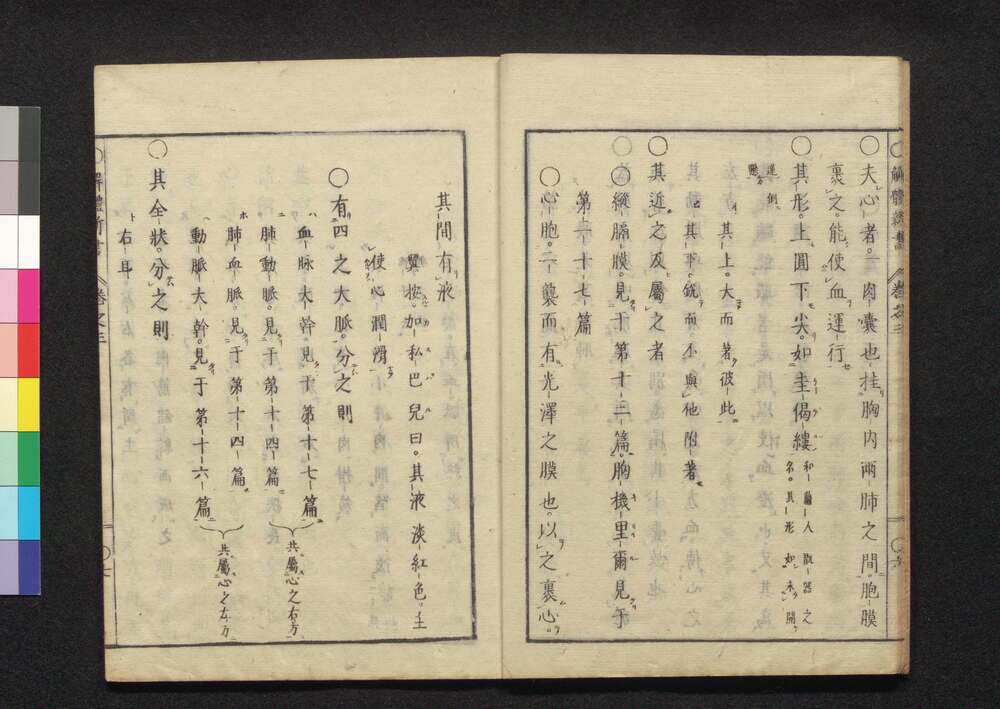 解體新書 卷之三
○夫心者。一肉囊也挂胸内兩肺之間。胞膜
裹之。能使血運行
○其形。上圓下尖。如圭偈縷
和蘭人 取器之
名。其形 如未開
蓮倒懸
其上。大而著彼此。
其下。銳而不與他附著。
○其近之及屬之者
○縱膈膜。見于第十三篇。胸機里爾見于
第二十七篇
○心胞。二襲而有光澤之膜也。以之裹心。
其間有液
翼按。加私巴兒曰。其液淡紅色。主
使心潤滑
○有四之大脈。分之則
ハ血脉大幹。見于第十七篇
ニ肺動脈。見于第十四篇
共屬心之右方
ホ肺血脈。見于第十四篇
ヘ動脈大幹。見于第十六篇
共屬心之左方
○其全狀。分之則
ト右耳
解體新書 卷之三